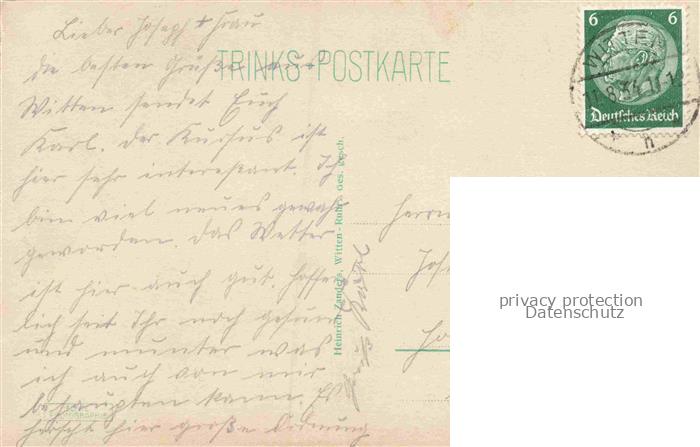 Lieber Joseph + Frau
TRINKS-POSTKARTE
die besten Grüße aus
Witten sendet Euch
Karl. Der Kursus ist
hier sehr interessant. Ich
bin viel neues gewahr
geworden. Das Wetter
ist hier auch gut. Hoffent
lich seit Ihr noch gesund
und munter was
ich auch von mir
behaupten kann. Es
herscht hier große Ordnung
Heinrich Zanders, Witten-Ruhr. Ges. gesch.
6 6
Deutsches Reich
WITTEN
Herrn
Jose
privacy protection
Datenschutz